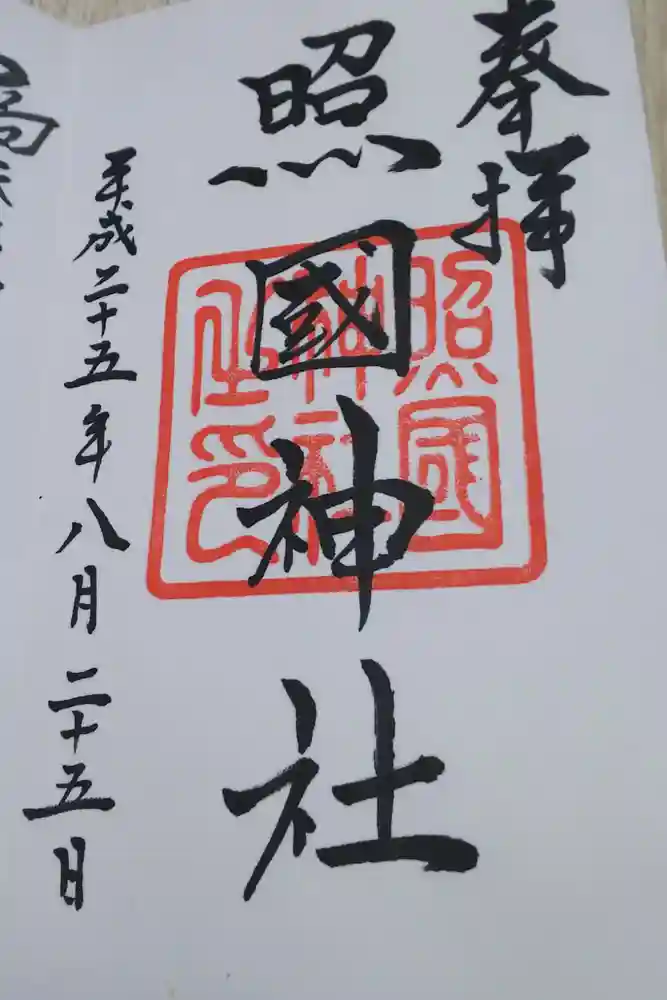 奉拝
照國神社
照国神社之印
平成二十五年八月二十五日
高